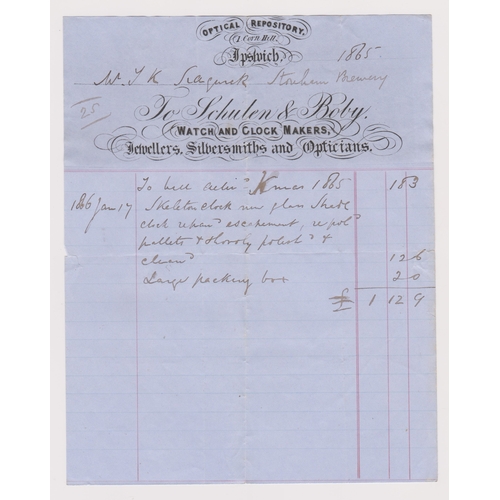 OPTICAL REPOSITORY.
1 Corn Hill,
Ipswich, 1865.
Mr T K Stonham Brewery
25
To Schulen & Boby,
WATCH AND CLOCK MAKERS,
Jewellers, Silversmiths and Opticians.
To bill Xmas 1865 18 3
1866 Jan 17 Skeleton clock new glass Shade
clock escapement, repol
pallets & thoroly polish &
clean 12 6
Large packing box 2 0
£ 1 12 9